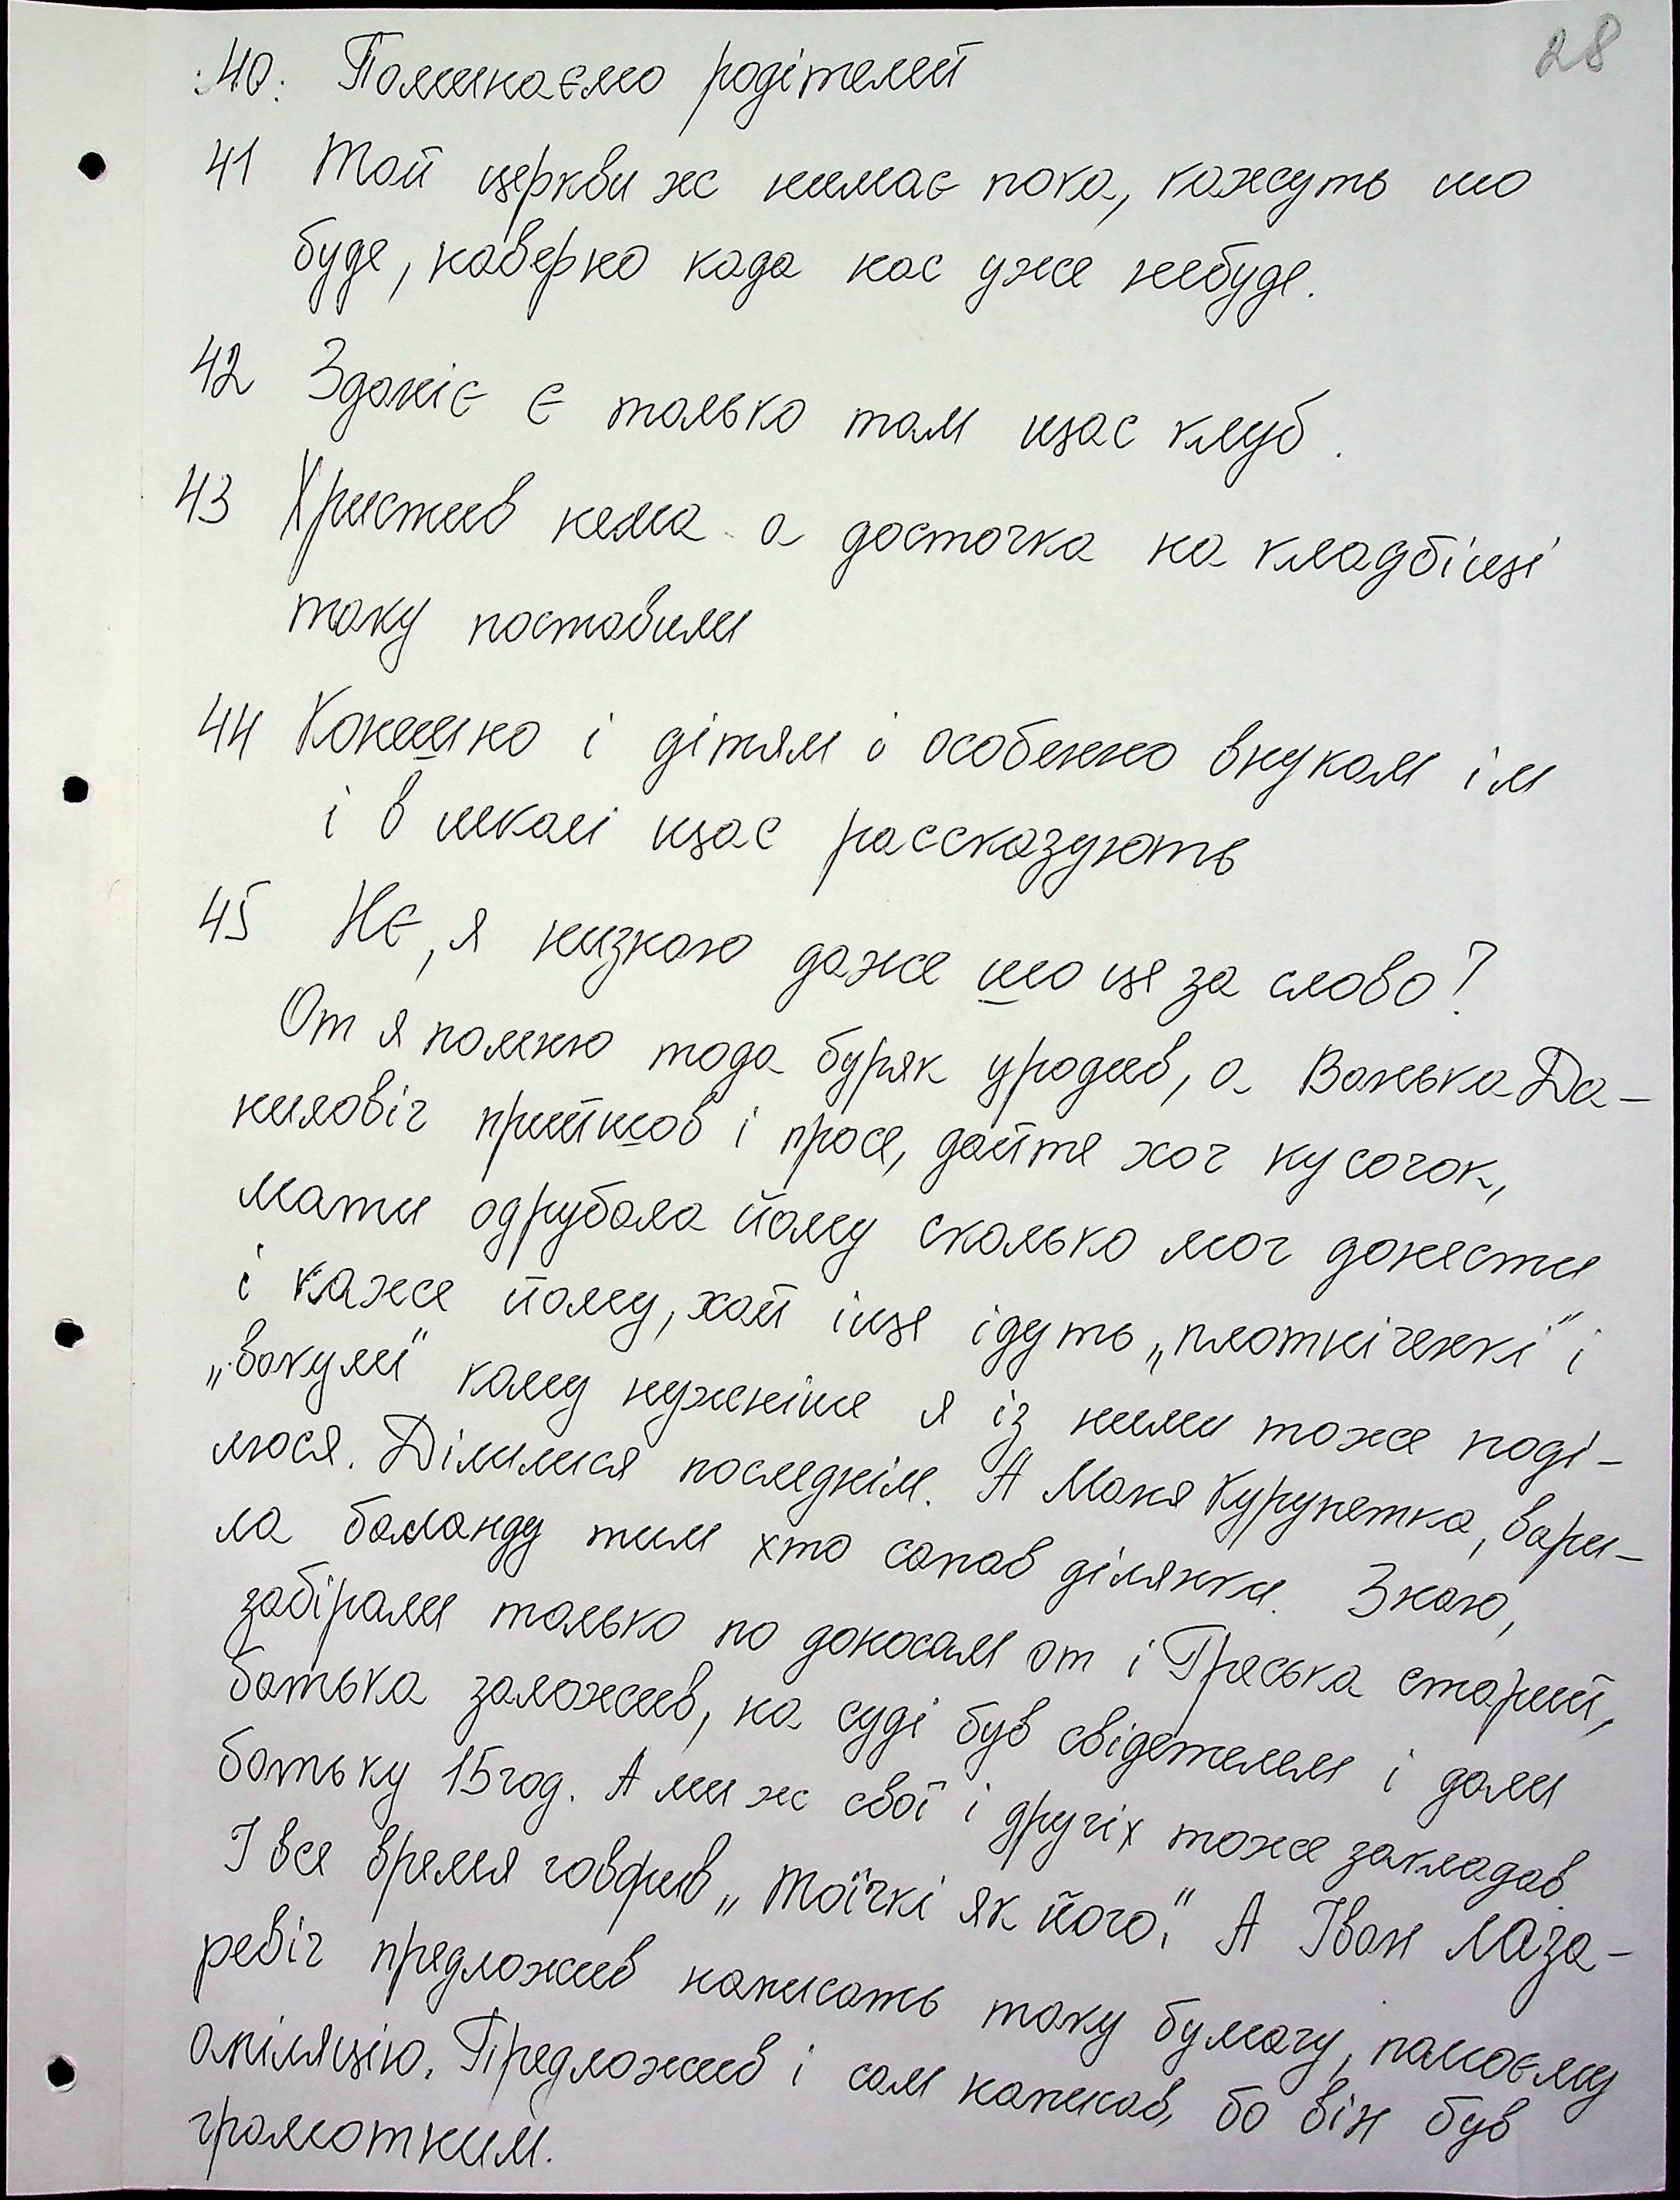 28
40. Поминаємо родітелей
41 Той церкви ж нимає пока, кажуть шо
буде, наверно када нас уже небуде.
42 Зданіє є только там щас клуб.
43 Христив нема а досточка на кладбіщі
таку поставили
44 Конешно і дітям і особенно внукам їм
і в школі щас рассказують
45 Нє, я низнаю даже шо це за слово?
От я помню тода буряк уродив, а Ванька Да-
нилович прийшов і просе, дайте хоч кусочок,
мати одрубала йому сколько мог донести
і каже йому, хай іще ідуть „плотніченкі" і
„вакулі" кому нужніше я із ними тоже поді-
люся. Ділилися последнім. А Маня Курупетка, вари-
ла баланду тим хто сапав ділянки. Знаю,
забірали только по доносам от і Гриська старий,
батька заложив, на суді був свідетелем і дали
батьку 15год. А ми ж свої і другіх тоже закладав.
І все время говорив „тоїчкі як його". А Іван Лаза-
ревіч предложив написать таку бумагу, помоєму
апіляцію. Предложив і сам написав, бо він був
грамотним.